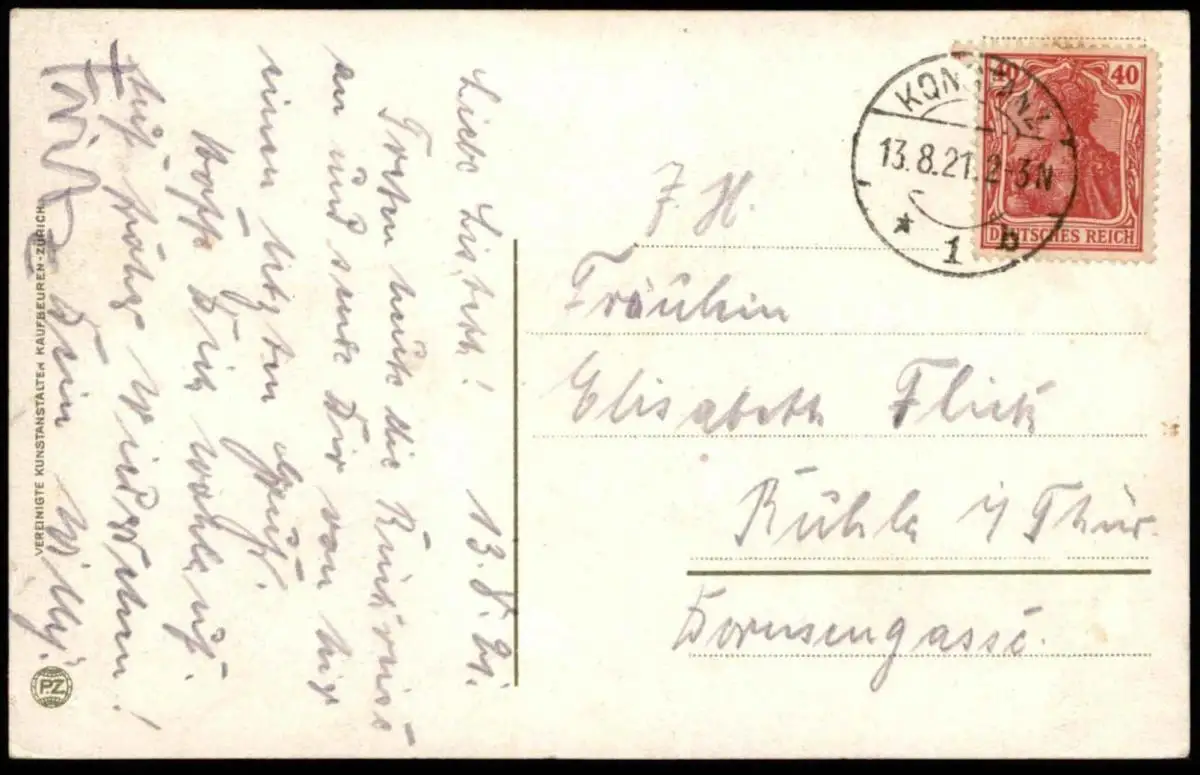 Liebe Lisbeth! 13. 8. 21.
Treten heute die Rückreise
an und sende Dir von hier
einen letzten Gruß.
Hoffe Dich wohlauf.
Auf frohes Wiedersehn!
Dein Willy.
VEREINIGTE KUNSTANSTALTEN KAUFBEUREN-ZÜRICH
P.Z.
KONSTANZ
13.8.21.2-3N
* 1 b
40 40
DEUTSCHES REICH
I. H.
Fräulein
Elisabeth Flick
Ruhla i/Thür.
Dornsengasse.